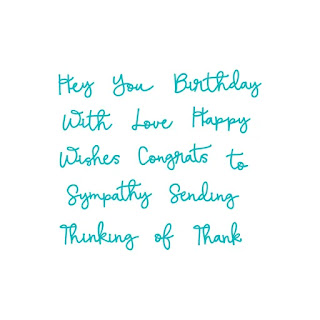 Hey You Birthday
With Love Happy
Wishes Congrats to
Sympathy Sending
Thinking of Thank